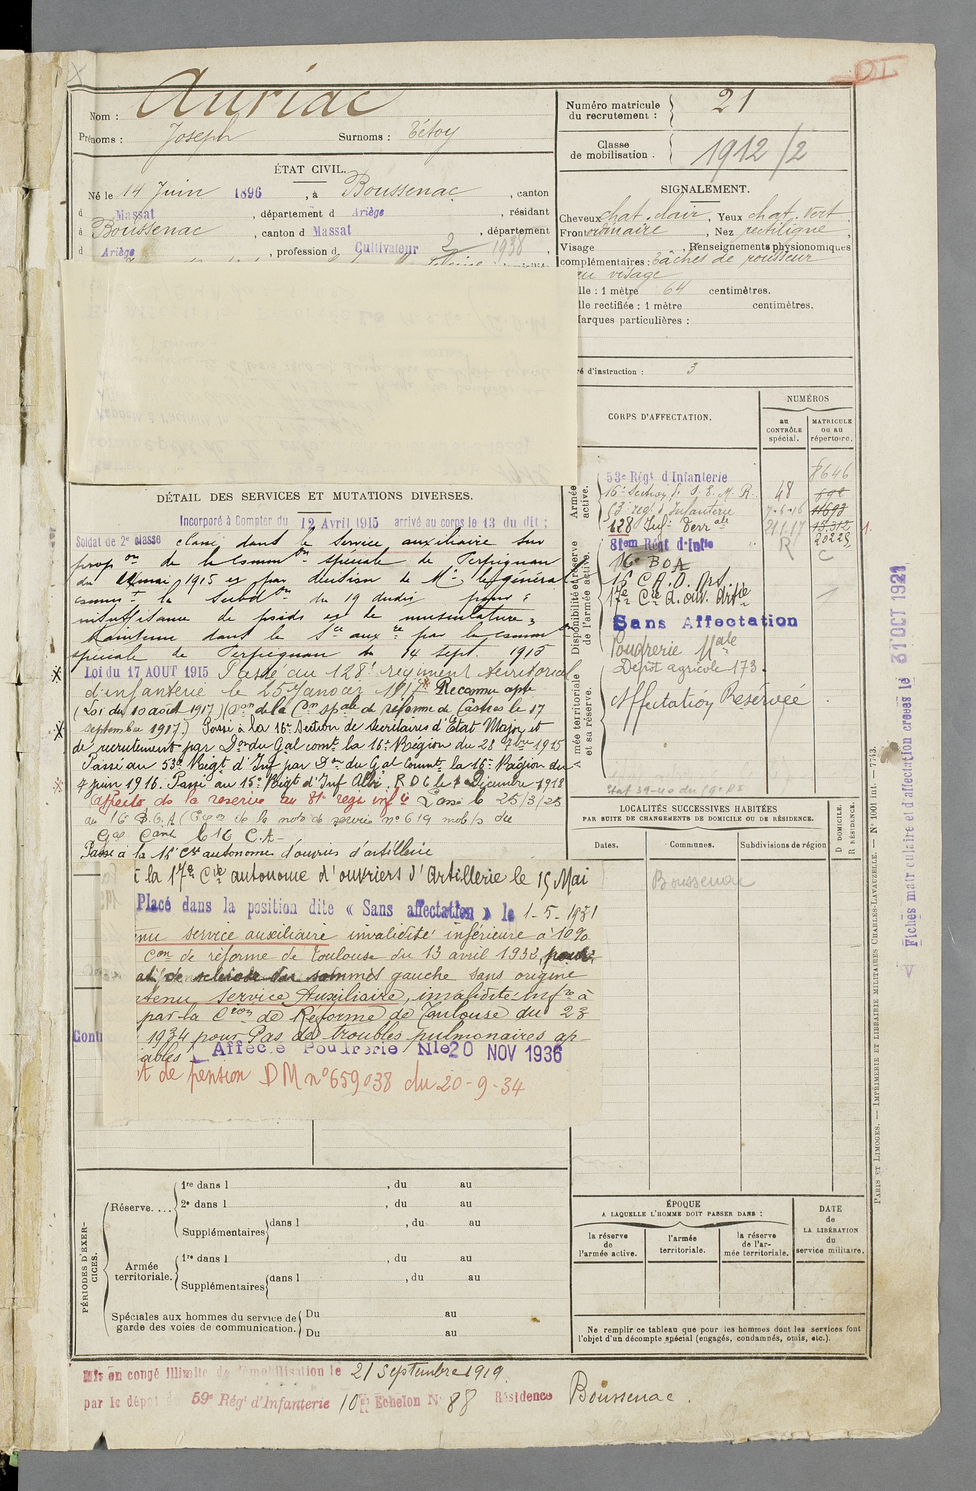 Nom : Auriac
Prénoms : Joseph Surnoms : Tétoy
Numéro matricule du recrutement : 21
Classe de mobilisation : 1912/2
ÉTAT CIVIL.
Né le 14 Juin 1896, à Boussenac, canton
d Massat, département d Ariège, résidant
à Boussenac, canton d Massat, département
d Ariège, profession d Cultivateur 2 1938
SIGNALEMENT.
Cheveux chat. clair, Yeux chat. vert
Front ordinaire, Nez rectiligne,
Visage , Renseignements physionomiques
complémentaires : tâches de rousseur
au visage
lle : 1 mètre 64 centimètres.
lle rectifiée : 1 mètre centimètres.
arques particulières :
é d'instruction : 3
CORPS D'AFFECTATION.
NUMÉROS
au CONTRÔLE spécial.
MATRICULE ou au répertoire.
DÉTAIL DES SERVICES ET MUTATIONS DIVERSES.
Incorporé à Compter du 12 Avril 1915 arrivé au corps le 13 du dit ;
Soldat de 2e classe classé dans le service auxiliaire sur
prop on de la comm on spéciale de Perpignan
du mai 1915 et par décision de Mr le général
comm t la Subd on du 19 dudit pour :
insuffisance de poids et de musculature,
Maintenu dans le Sce auxre par la comm on
spéciale de Perpignan du 14 sept. 1915
Loi du 17 AOUT 1915 Passé au 128e régiment territorial
d'infanterie le 25 Janvier 1917 Reconnu apte
(Loi du 10 août 1917) (Don de la Con spale de réforme de Castres le 17
septembre 1917.) Passé à la 16e Section de Secrétaires d'Etat Major et
de recrutement par Don du Gal comt la 16e Région du 28 9bre 1915
Passé au 53e Régt d'Inf par Don du Gal Commt la 16e Région du
7 juin 1916. Passé au 15e Régt d'Inf Albi. R.D.C le Décembre 1918
Affecté de la réserve au 81e régt infie Passé le 25/3/25
au 16 B.O.A de la note de service n° 619 mob/s du
Gal Comt le 16 C.A-
Passé à la 16e Cie autonome d'ouvriers d'artillerie
à la 17e Cie autonome d'ouvriers d'Artillerie le 15 Mai
Placé dans la position dite « Sans affectation » le 1-5-1931
nu service auxiliaire invalidité inférieure à 10%
Con de réforme de Toulouse du 13 avril 1932 pour
de sclérose du sommet gauche sans origine
tenu service Auxiliaire, invalidité infre à
par la Con de Réforme de Toulouse du 23
1934 pour Pas de troubles pulmonaires ap-
ables Affecté Poudrerie Nle 20 NOV 1936
t de pension DM n° 659038 du 20-9-34
Cont
Armée active.
Disponibilité et réserve de l'armée active.
Armée territoriale et sa réserve.
53e Régt d'Infanterie 8646
16e Section S. E. M. R. 48
53 régt Infanterie 7-6-16 11693
128 Infie Terrale 21-1-17
81em Régt d'Infie R 20229
16e BOA C
16e C.A.O. Art
17e Cie d. ouv. d'Artie 1
Sans Affectation
Poudrerie Nale
Dépôt agricole 173.
Affectation Réservée.
LOCALITÉS SUCCESSIVES HABITÉES
PAR SUITE DE CHANGEMENTS DE DOMICILE OU DE RÉSIDENCE.
Dates. Communes. Subdivisions de région D DOMICILE. R RÉSIDENCE.
Boussenac
PÉRIODES D'EXERCICES.
Réserve.... 1re dans l , du au
2e dans l , du au
Supplémentaires dans l , du au
Armée territoriale. 1re dans l , du au
Supplémentaires dans l , du au
Spéciales aux hommes du service de garde des voies de communication. Du au
Du au
ÉPOQUE
A LAQUELLE L'HOMME DOIT PASSER DANS :
la réserve de l'armée active.
l'armée territoriale.
la réserve de l'armée territoriale.
DATE de LA LIBÉRATION du service militaire.
Ne remplir ce tableau que pour les hommes dont les services font
l'objet d'un décompte spécial (engagés, condamnés, omis, etc.).
Mis en congé illimité de démobilisation le 21 Septembre 1919.
par le dépôt 59e Rég' d'Infanterie 10e Echelon N° 88 Résidence Boussenac.
PARIS ET LIMOGES. — IMPRIMERIE ET LIBRAIRIE MILITAIRES CHARLES-LAVAUZELLE. — N° 1001 int. — 7743.
Fiches matriculaire et d'affectation créées le 31 OCT 1921